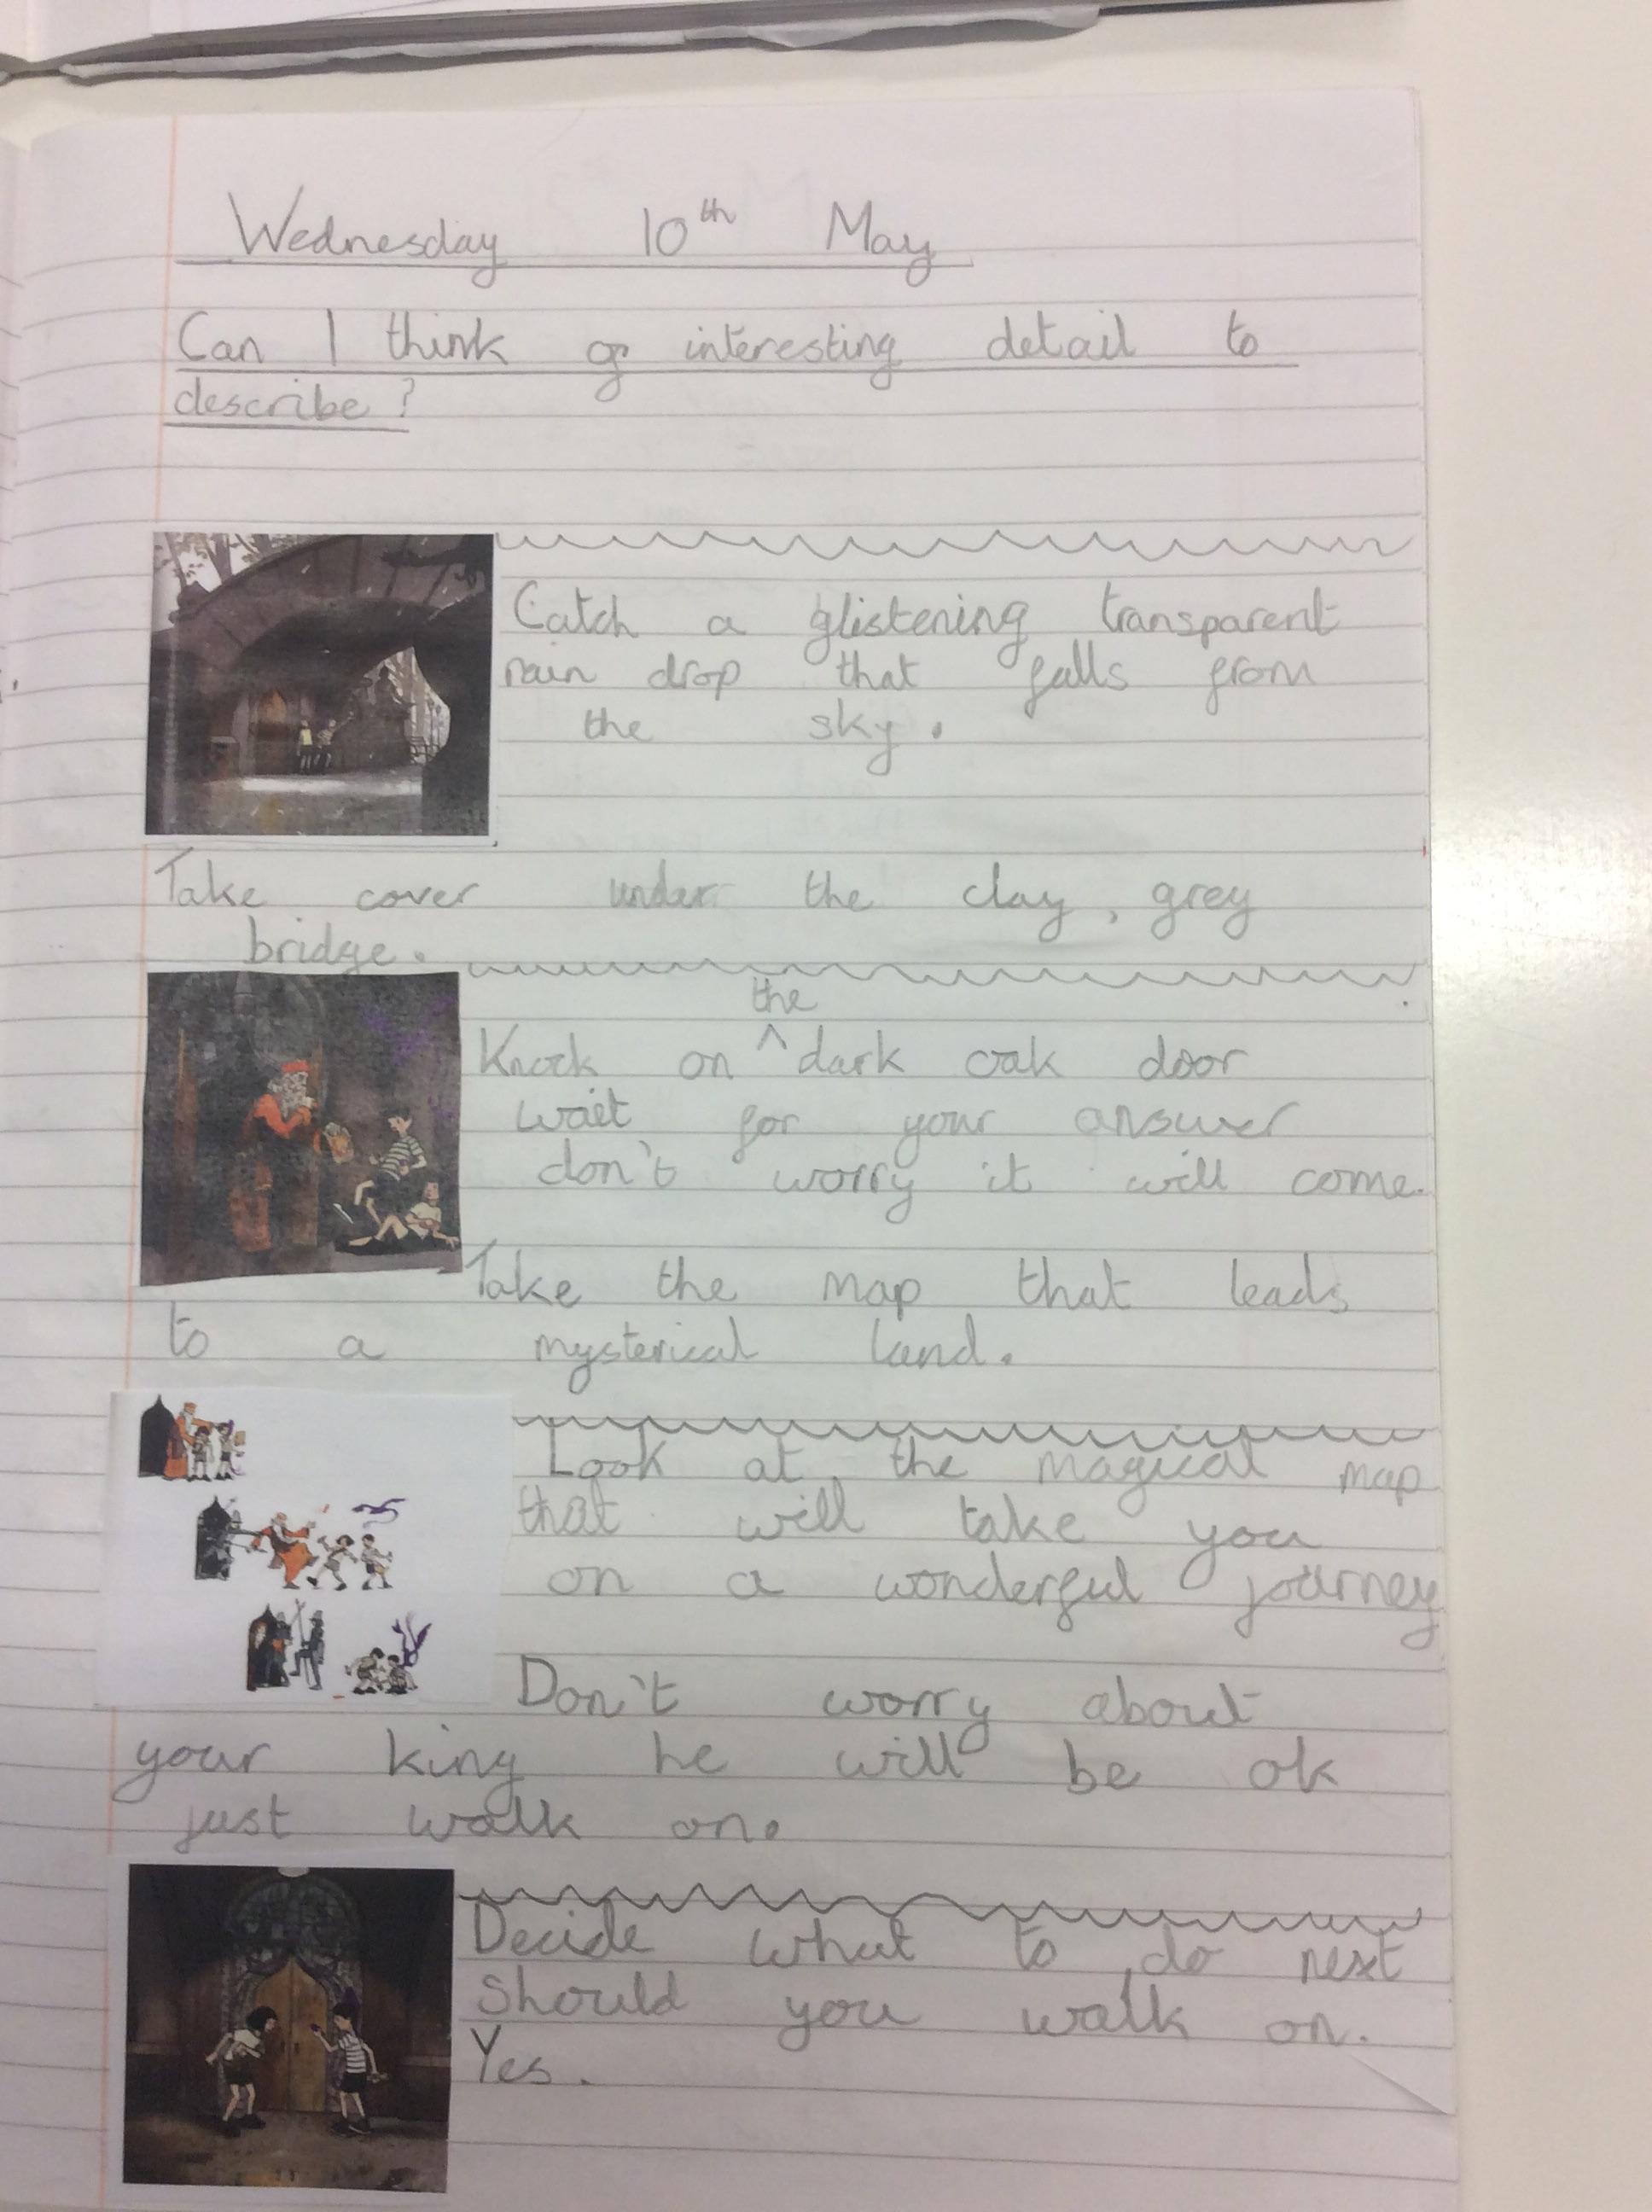 Wednesday 10th May
Can I think of interesting detail to
describe?
Catch a glistening transparent
rain drop that falls from
the sky.
Take cover under the clay, grey
bridge.
the
Knock on ^ dark oak door
wait for your answer
don't worry it will come.
Take the map that leads
to a mysterical land.
Look at the magical map
that will take you
on a wonderful journey
Don't worry about
your king he will be ok
just walk on.
Decide what to do next
should you walk on.
Yes.